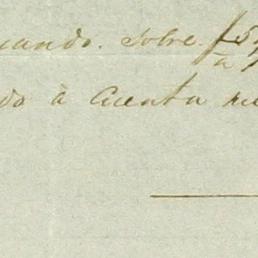 uando. Sobre £5
à
do à Cuenta